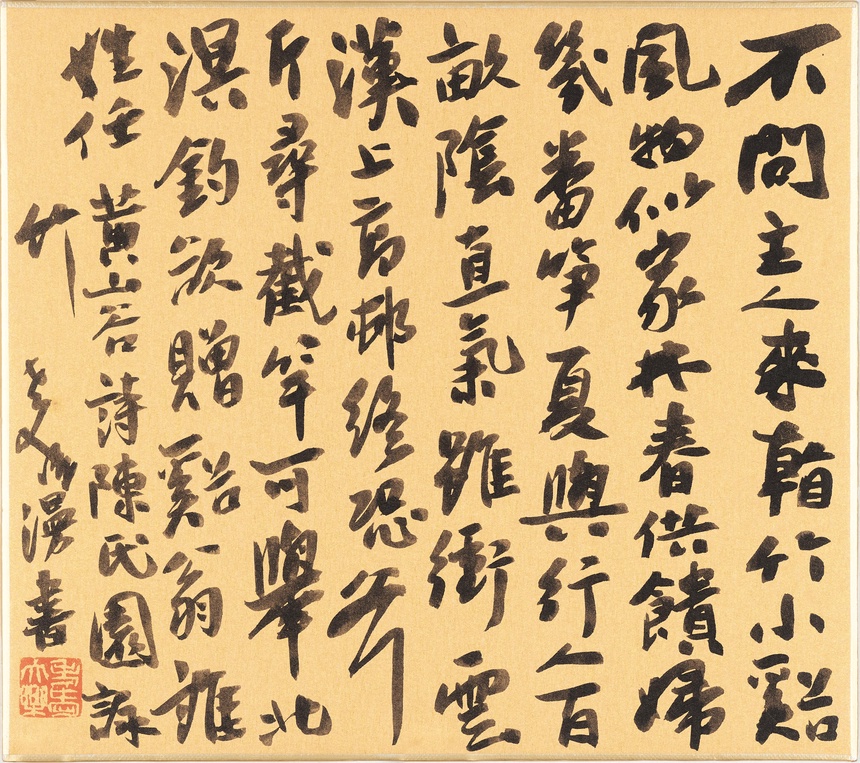 不問主人來看竹小谿
風物似家林春供饋婦
幾蕃筍夏與行人百
畝陰直氣雖衝雲
漢上高邨終恐斧
斤尋截竿可舉北
溟釣欲贈谿翁誰
姓任 黃山谷詩陳氏園詠
竹 漫書